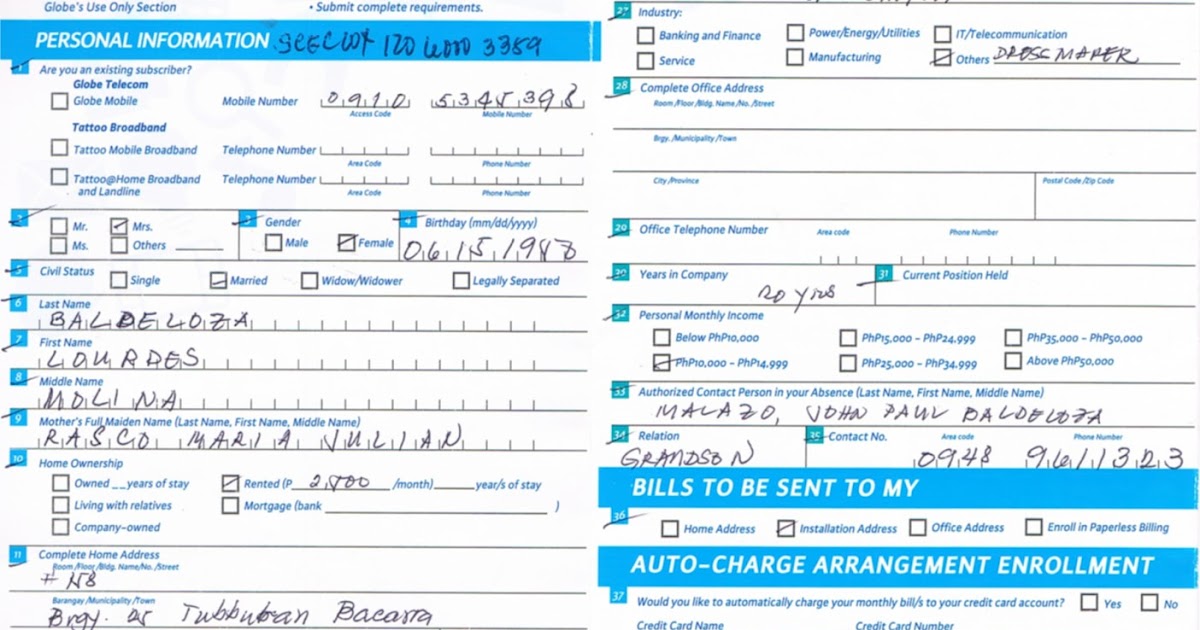 Globe's Use Only Section
• Submit complete requirements.
PERSONAL INFORMATION
1 Are you an existing subscriber?
Globe Telecom
Globe Mobile Mobile Number 0910 5345398
Access Code Mobile Number
Tattoo Broadband
Tattoo Mobile Broadband Telephone Number
Area Code Phone Number
Tattoo@Home Broadband Telephone Number
and Landline Area Code Phone Number
2 Mr. Mrs. 3 Gender 4 Birthday (mm/dd/yyyy)
Ms. Others Male Female 06151948
5 Civil Status Single Married Widow/Widower Legally Separated
6 Last Name
BALDELOZA
7 First Name
LOURDES
8 Middle Name
MOLINA
9 Mother's Full Maiden Name (Last Name, First Name, Middle Name)
RASCO MARIA JULIAN
10 Home Ownership
Owned __years of stay Rented (P 2,800 /month) year/s of stay
Living with relatives Mortgage (bank )
Company-owned
11 Complete Home Address
Room/Floor/Bldg. Name/No. /Street
Barangay /Municipality /Town
Brgy. Tubburan Bacarra
27 Industry:
Banking and Finance Power/Energy/Utilities IT/Telecommunication
Service Manufacturing Others DRESSMAKER
28 Complete Office Address
Room /Floor /Bldg. Name /No. /Street
Brgy. /Municipality /Town
City /Province Postal Code /Zip Code
29 Office Telephone Number Area code Phone Number
30 Years in Company 31 Current Position Held
20 yrs
32 Personal Monthly Income
Below PhP10,000 PhP15,000 – PhP24,999 PhP35,000 – PhP50,000
PhP10,000 – PhP14,999 PhP25,000 – PhP34,999 Above PhP50,000
33 Authorized Contact Person in your Absence (Last Name, First Name, Middle Name)
MALAZO, JOHN PAUL BALDELOZA
34 Relation 35 Contact No. Area code Phone Number
GRANDSON 0948 9611323
BILLS TO BE SENT TO MY
36 Home Address Installation Address Office Address Enroll in Paperless Billing
AUTO-CHARGE ARRANGEMENT ENROLLMENT
37 Would you like to automatically charge your monthly bill/s to your credit card account? Yes No
Credit Card Name Credit Card Number